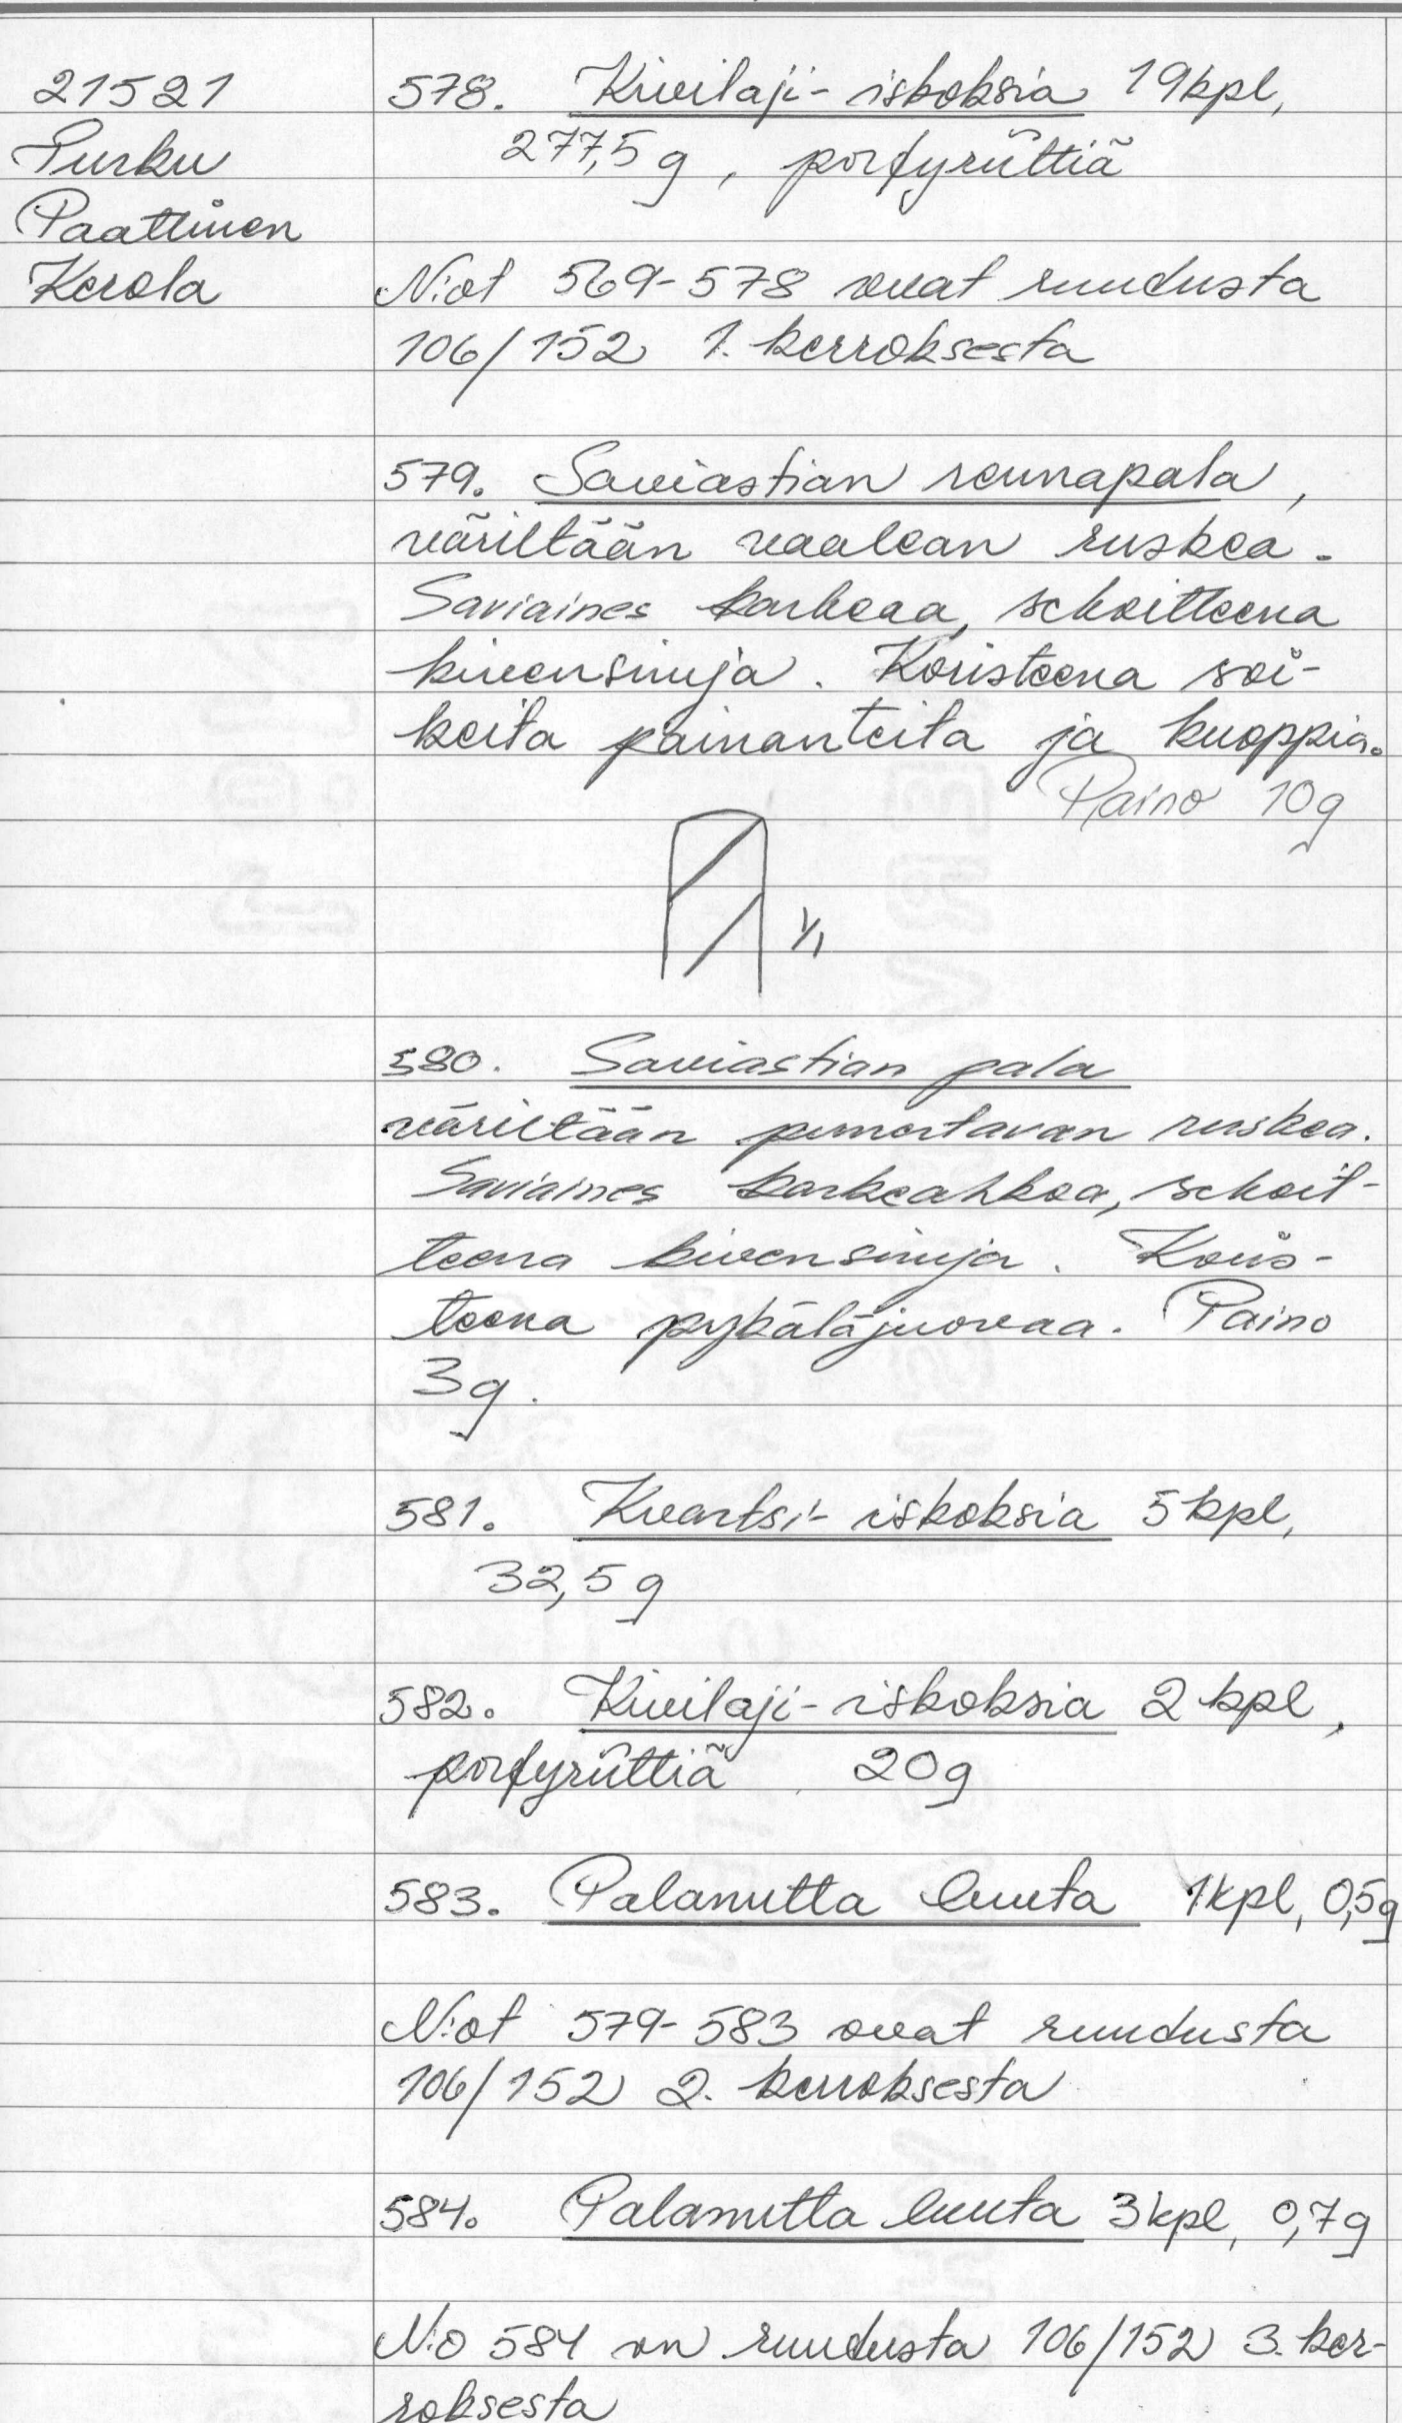 21521
Turku
Paattinen
Kerola
578. Kivilaji-iskoksia 19kpl,
277,5 g, porfyriittiä
N:ot 569-578 ovat ruudusta
106/152 1. kerroksesta
579. Saviastian reunapala,
väriltään vaalean ruskea.
Saviaines karkeaa, sekoitteena
kivensiruja. Koristeena soi-
keita painanteita ja kuoppia.
Paino 10g
1/1
580. Saviastian pala
väriltään punertavan ruskea.
Saviaines karkeahkoa, sekoit-
teena kivensiruja. Koris-
teena pykäläjuovaa. Paino
3g.
581. Kvartsi-iskoksia 5kpl,
32,5 g
582. Kivilaji-iskoksia 2 kpl,
porfyriittiä 20g
583. Palanutta luuta 1kpl, 0,5g
N:ot 579-583 ovat ruudusta
106/152 2. kerroksesta
584. Palanutta luuta 3kpl, 0,7g
N:o 584 on ruudusta 106/152 3. ker-
roksesta